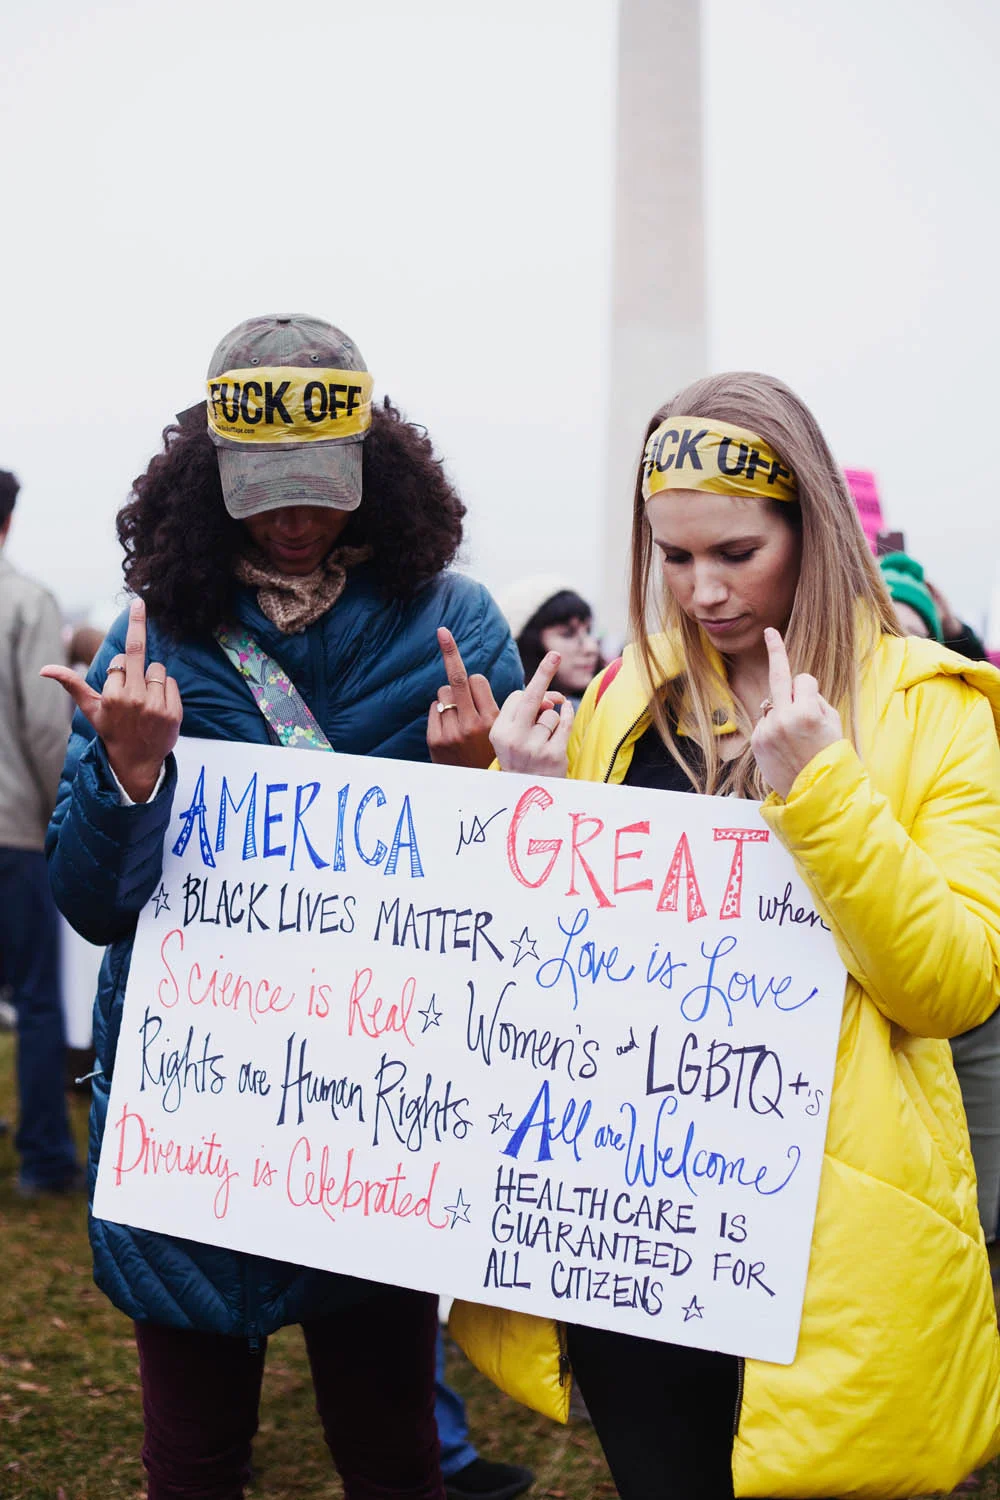 FUCK OFF
www.fuckofftape.com
CK OFF
AMERICA is GREAT when
☆ BLACK LIVES MATTER ☆ Love is Love
Science is Real ☆ Women's and LGBTQ+'s
Rights are Human Rights ☆ All are Welcome
Diversity is Celebrated ☆ HEALTHCARE IS
GUARANTEED FOR
ALL CITIZENS ☆